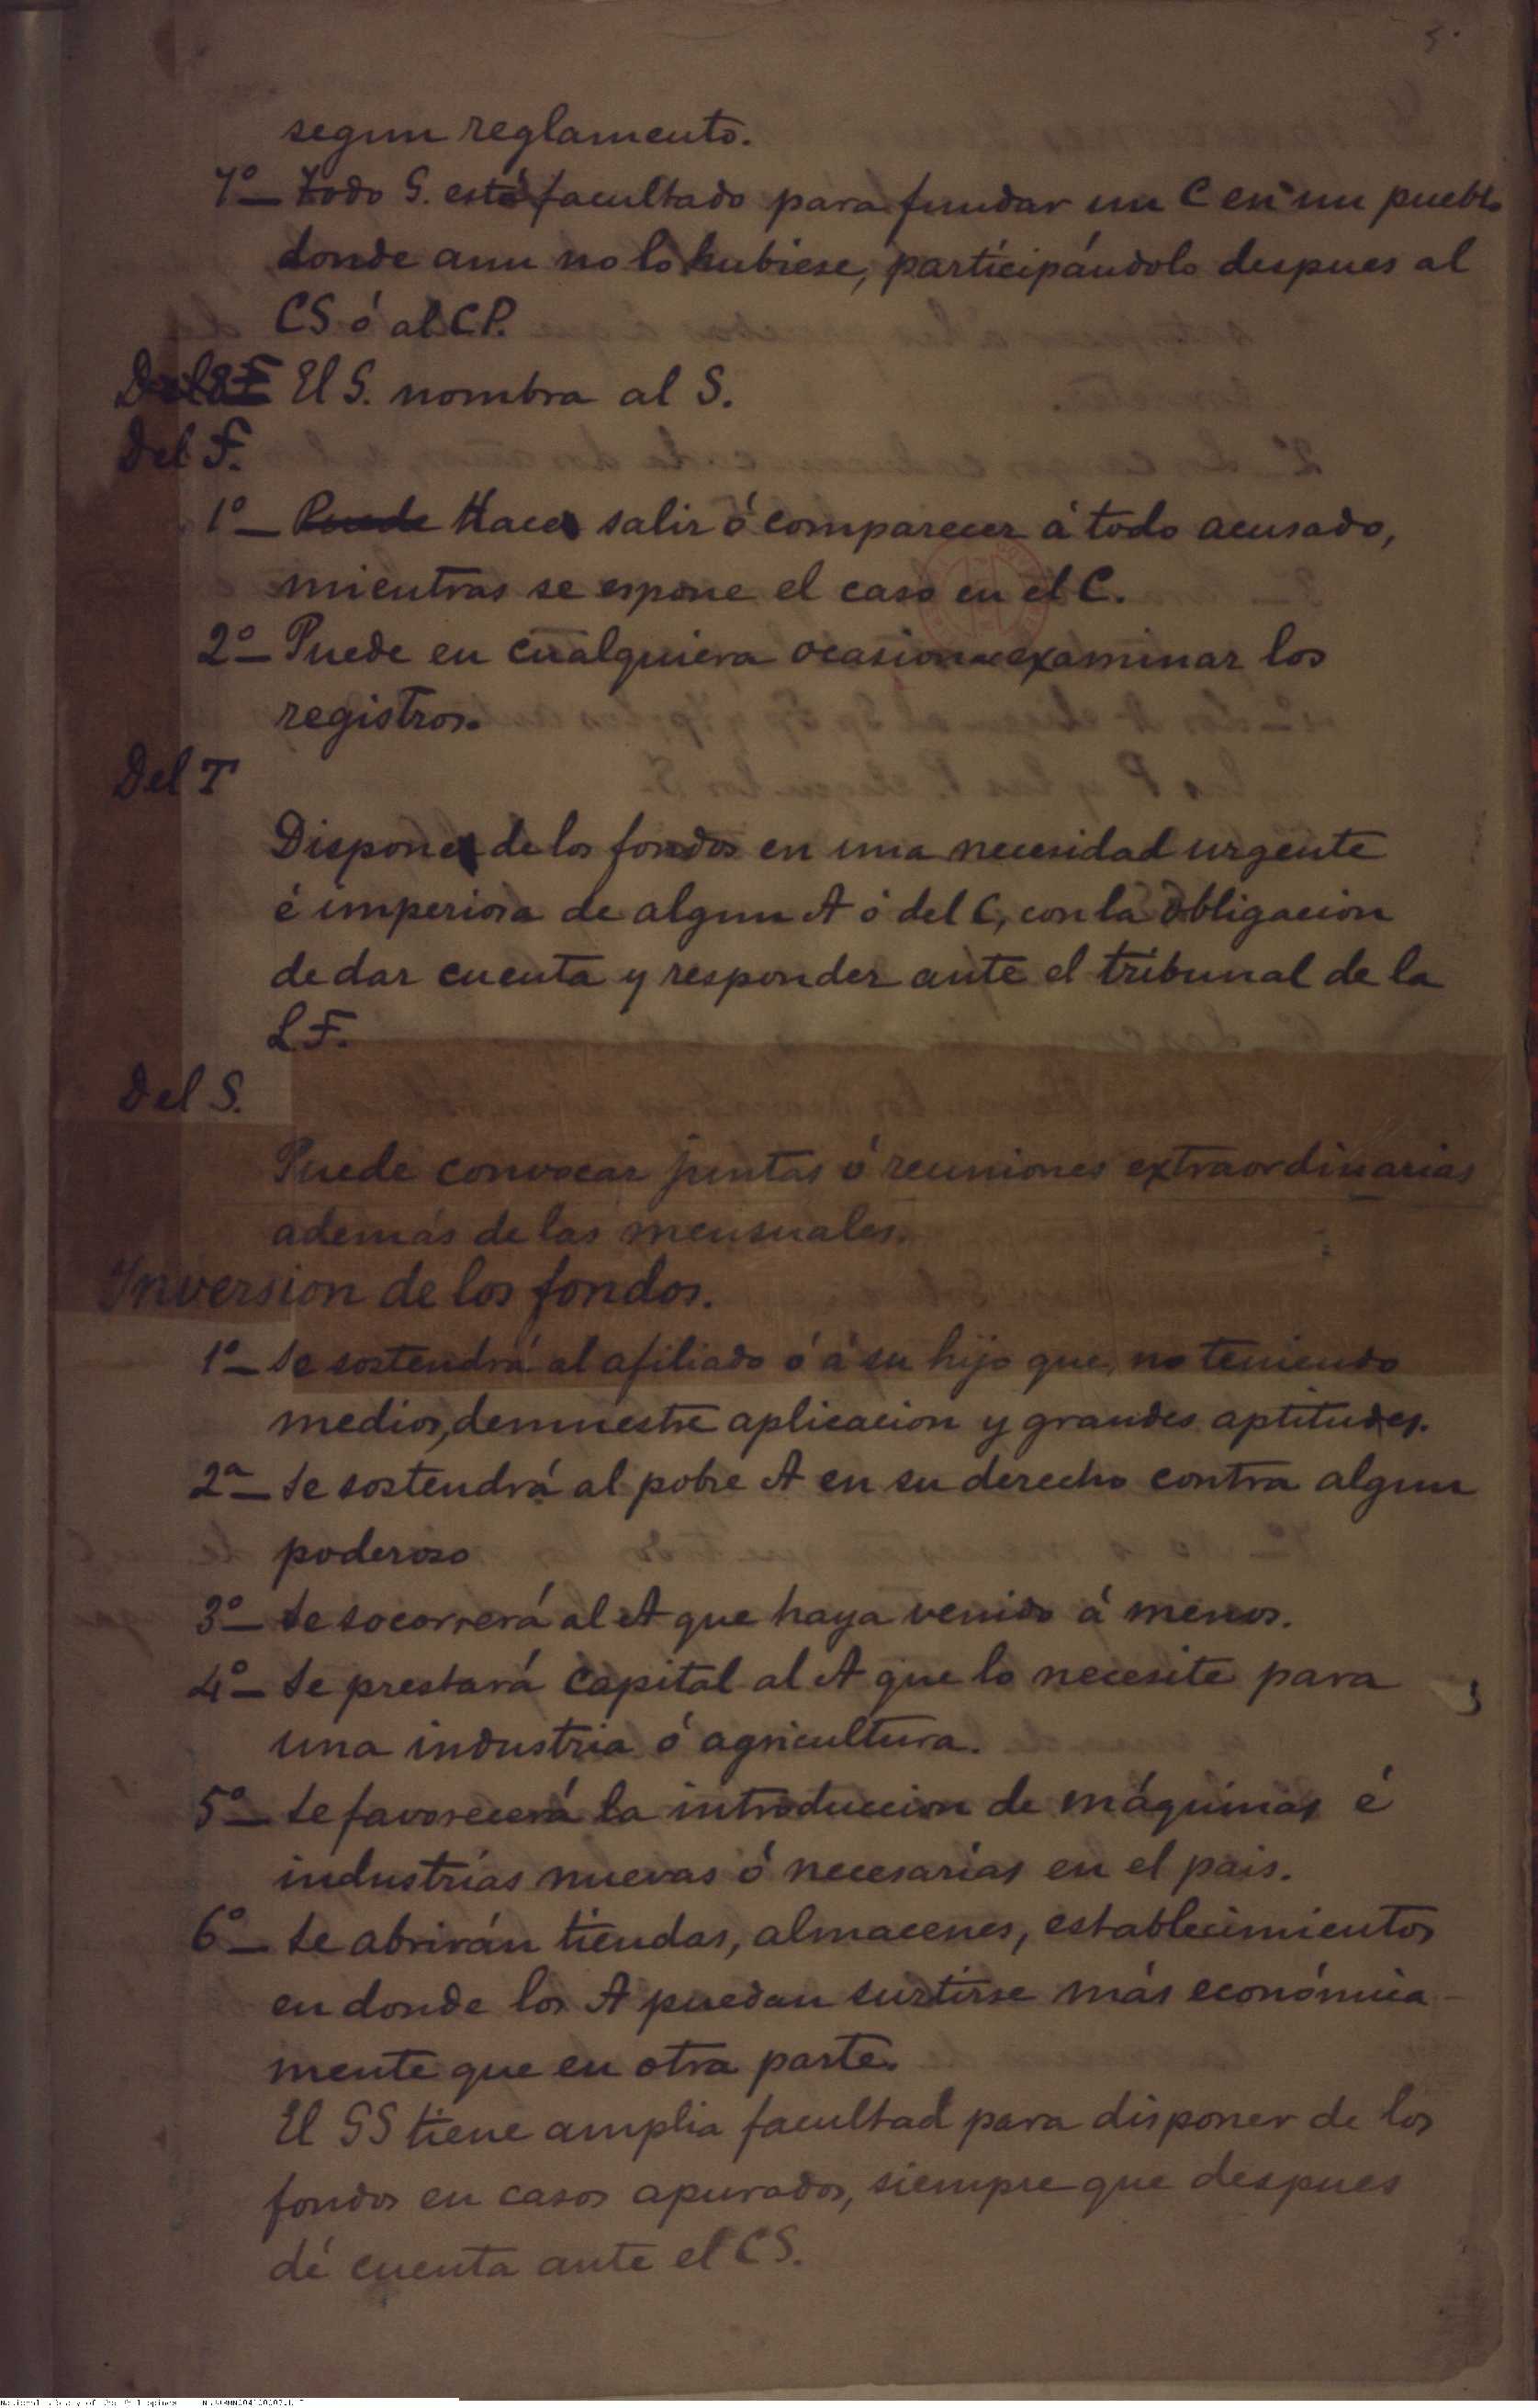 5.
segun reglamento.
7º— Todo G. está facultado para fundar un C en un pueblo
donde aun no lo hubiese, participándolo despues al
CS ó al C.P.
El G. nombra al S.
Del F.
1º— Puede Hacer salir ó comparecer á todo acusado,
mientras se espone el caso en el C.
2º— Puede en cualquiera ocasion examinar los
registros.
Del T
Dispone de los fondos en una necesidad urgente
é imperiosa de algun A ó del C, con la obligacion
de dar cuenta y responder ante el tribunal de la
L F.
Del S.
Puede convocar juntas ó reuniones extraordinarias
además de las mensuales.
Inversion de los fondos.
1º— Se sostendrá al afiliado ó á su hijo que, no teniendo
medios, demuestre aplicacion y grandes aptitudes.
2ª— Se sostendrá al pobre A en su derecho contra algun
poderoso
3º— Se socorrerá al A que haya venido á menos.
4º— Se prestará capital al A que lo necesite para
una industria ó agricultura.
5º— Se favorecerá la introduccion de máquinas é
industrias nuevas ó necesarias en el pais.
6º— Se abrirán tiendas, almacenes, establecimientos
en donde los A puedan surtirse más económica-
mente que en otra parte.
El GS tiene amplia facultad para disponer de los
fondos en casos apurados, siempre que despues
dé cuenta ante el CS.